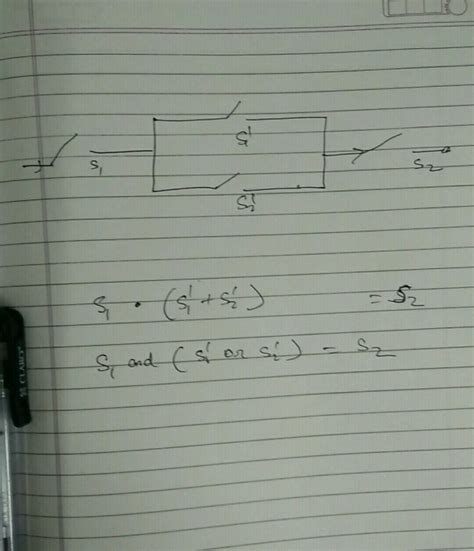 S₁'
S₁
S₂
S₂'
S₁ · (S₁' + S₂') = S₂
S₁ and (S₁' or S₂') = S₂